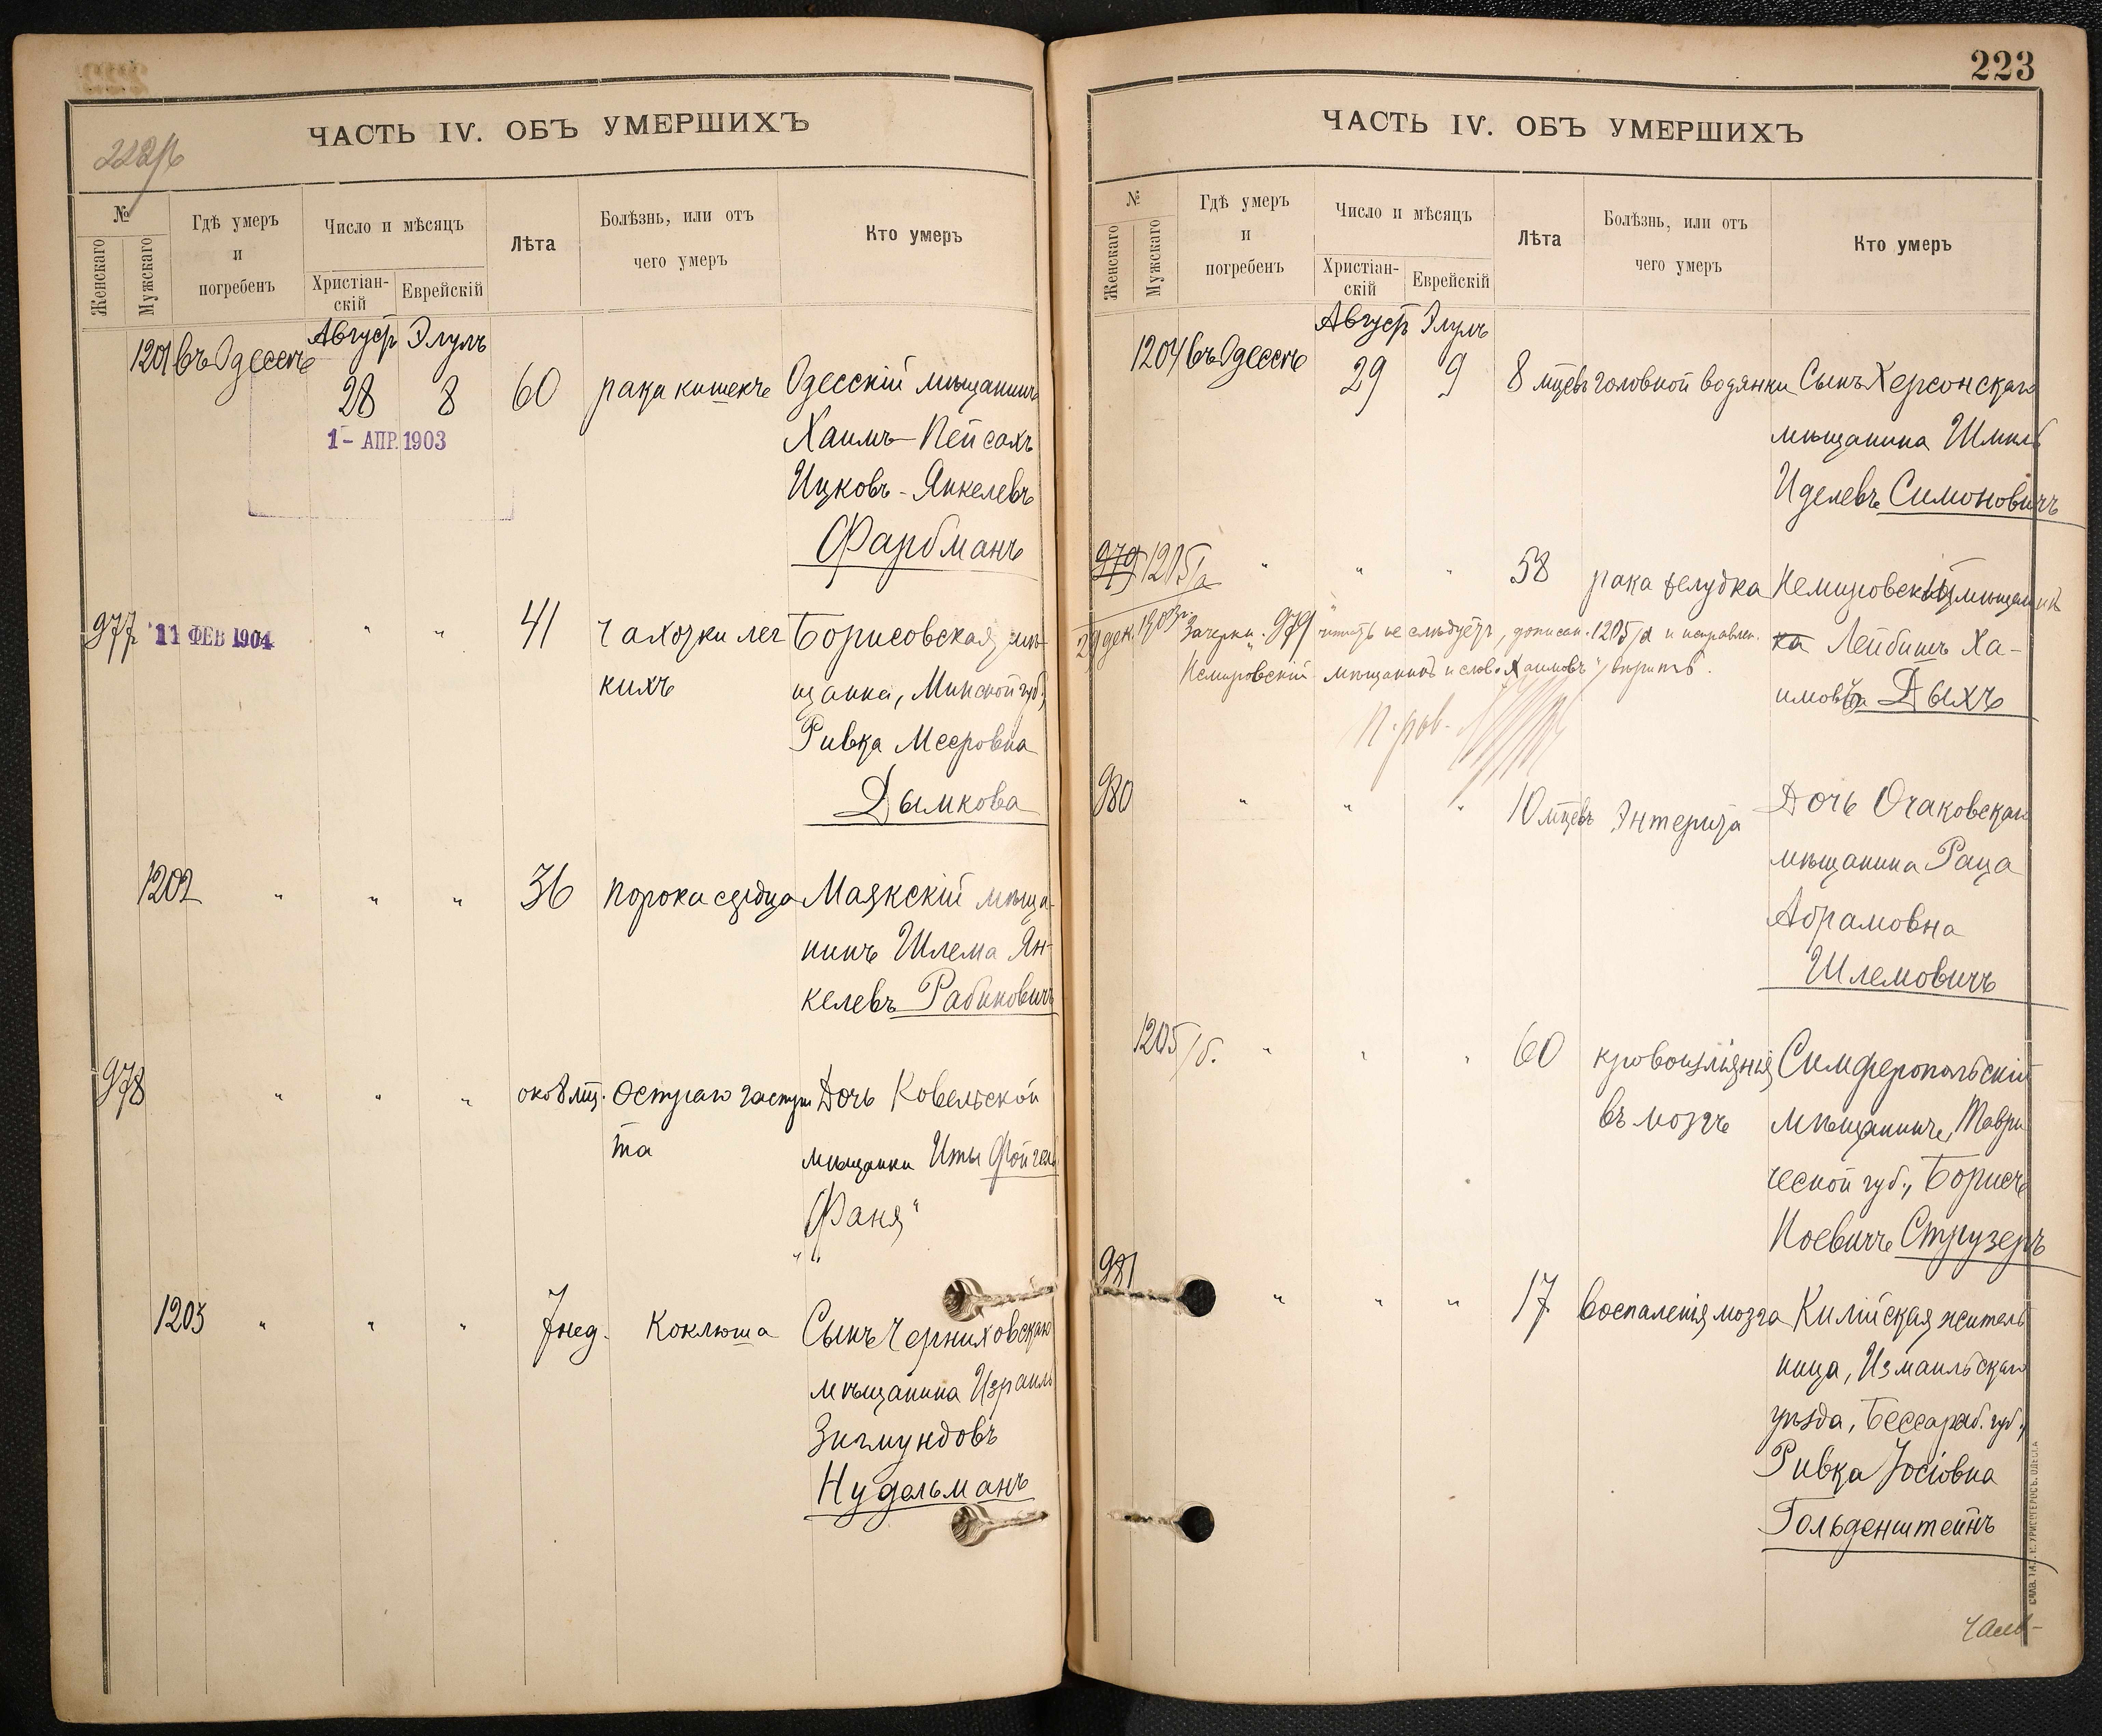 ЧАСТЬ IV. ОБЪ УМЕРШИХЪ
№
Женскаго
Мужскаго
Гдѣ умеръ
и
погребенъ
Число и мѣсяцъ
Христіан-
скій
Еврейскій
Лѣта
Болѣзнь, или отъ
чего умеръ
Кто умеръ
Август Элулъ
1201 въ Одессѣ
28 8 60 рака кишекъ Одесскій мѣщанинъ
1 - АПР. 1903
Хаимъ-Пейсахъ
Ицковъ-Янкелевъ
Фарбманъ
977 11 ФЕВ 1904 " " 41 чахотки лег Борисовская мѣ-
кихъ щанка, Минской губ.,
Ривка Мееровна
Дымкова
1202 " " " 36 порока сердца Маякскій мѣща-
нинъ Шлема Ян-
келевъ Рабиновичъ
978 " " " око 8 мц. остраго гастри Дочь Ковельской
та мѣщанки Иты Фойгель
"Фаня"
1203 " " " 7 нед. Коклюша Сынъ Черниховскаго
мѣщанина Израиль
Зигмундовъ
Нудельманъ
223
ЧАСТЬ IV. ОБЪ УМЕРШИХЪ
№
Женскаго
Мужскаго
Гдѣ умеръ
и
погребенъ
Число и мѣсяцъ
Христіан-
скій
Еврейскій
Лѣта
Болѣзнь, или отъ
чего умеръ
Кто умеръ
Август Элулъ
1204 въ Одессѣ 29 9 8 мцевъ головной водянки Сынъ Херсонскаго
мѣщанина Шмиль
Иделевъ Симоновичъ
979 1205/а " " " 58 рака желудка Немировскій мѣщанинъ
ка Лейбишъ Ха-
имовъ Дыхъ
29 дек. 1903г. Зачеркн. "979" читать не слѣдуетъ, дописан. 1205/а и исправлен.
Немировскій мѣщанинъ и слово "Хаимовъ" вѣрить.
980 " " " 10 мцевъ Энтерита Дочь Очаковскаго
мѣщанина Раца
Абрамовна
Шлемовичъ
1205/б. " " " 60 кровоизліянія Симферопольскій
въ мозгъ мѣщанинъ, Таври
ческой губ., Борисъ
Ноевичъ Струзеръ
981 " " " 17 воспаленія мозга Килійская житель
ница, Измаильскаго
уѣзда, Бессараб. губ.,
Ривка Іосіовна
Гольденштейнъ